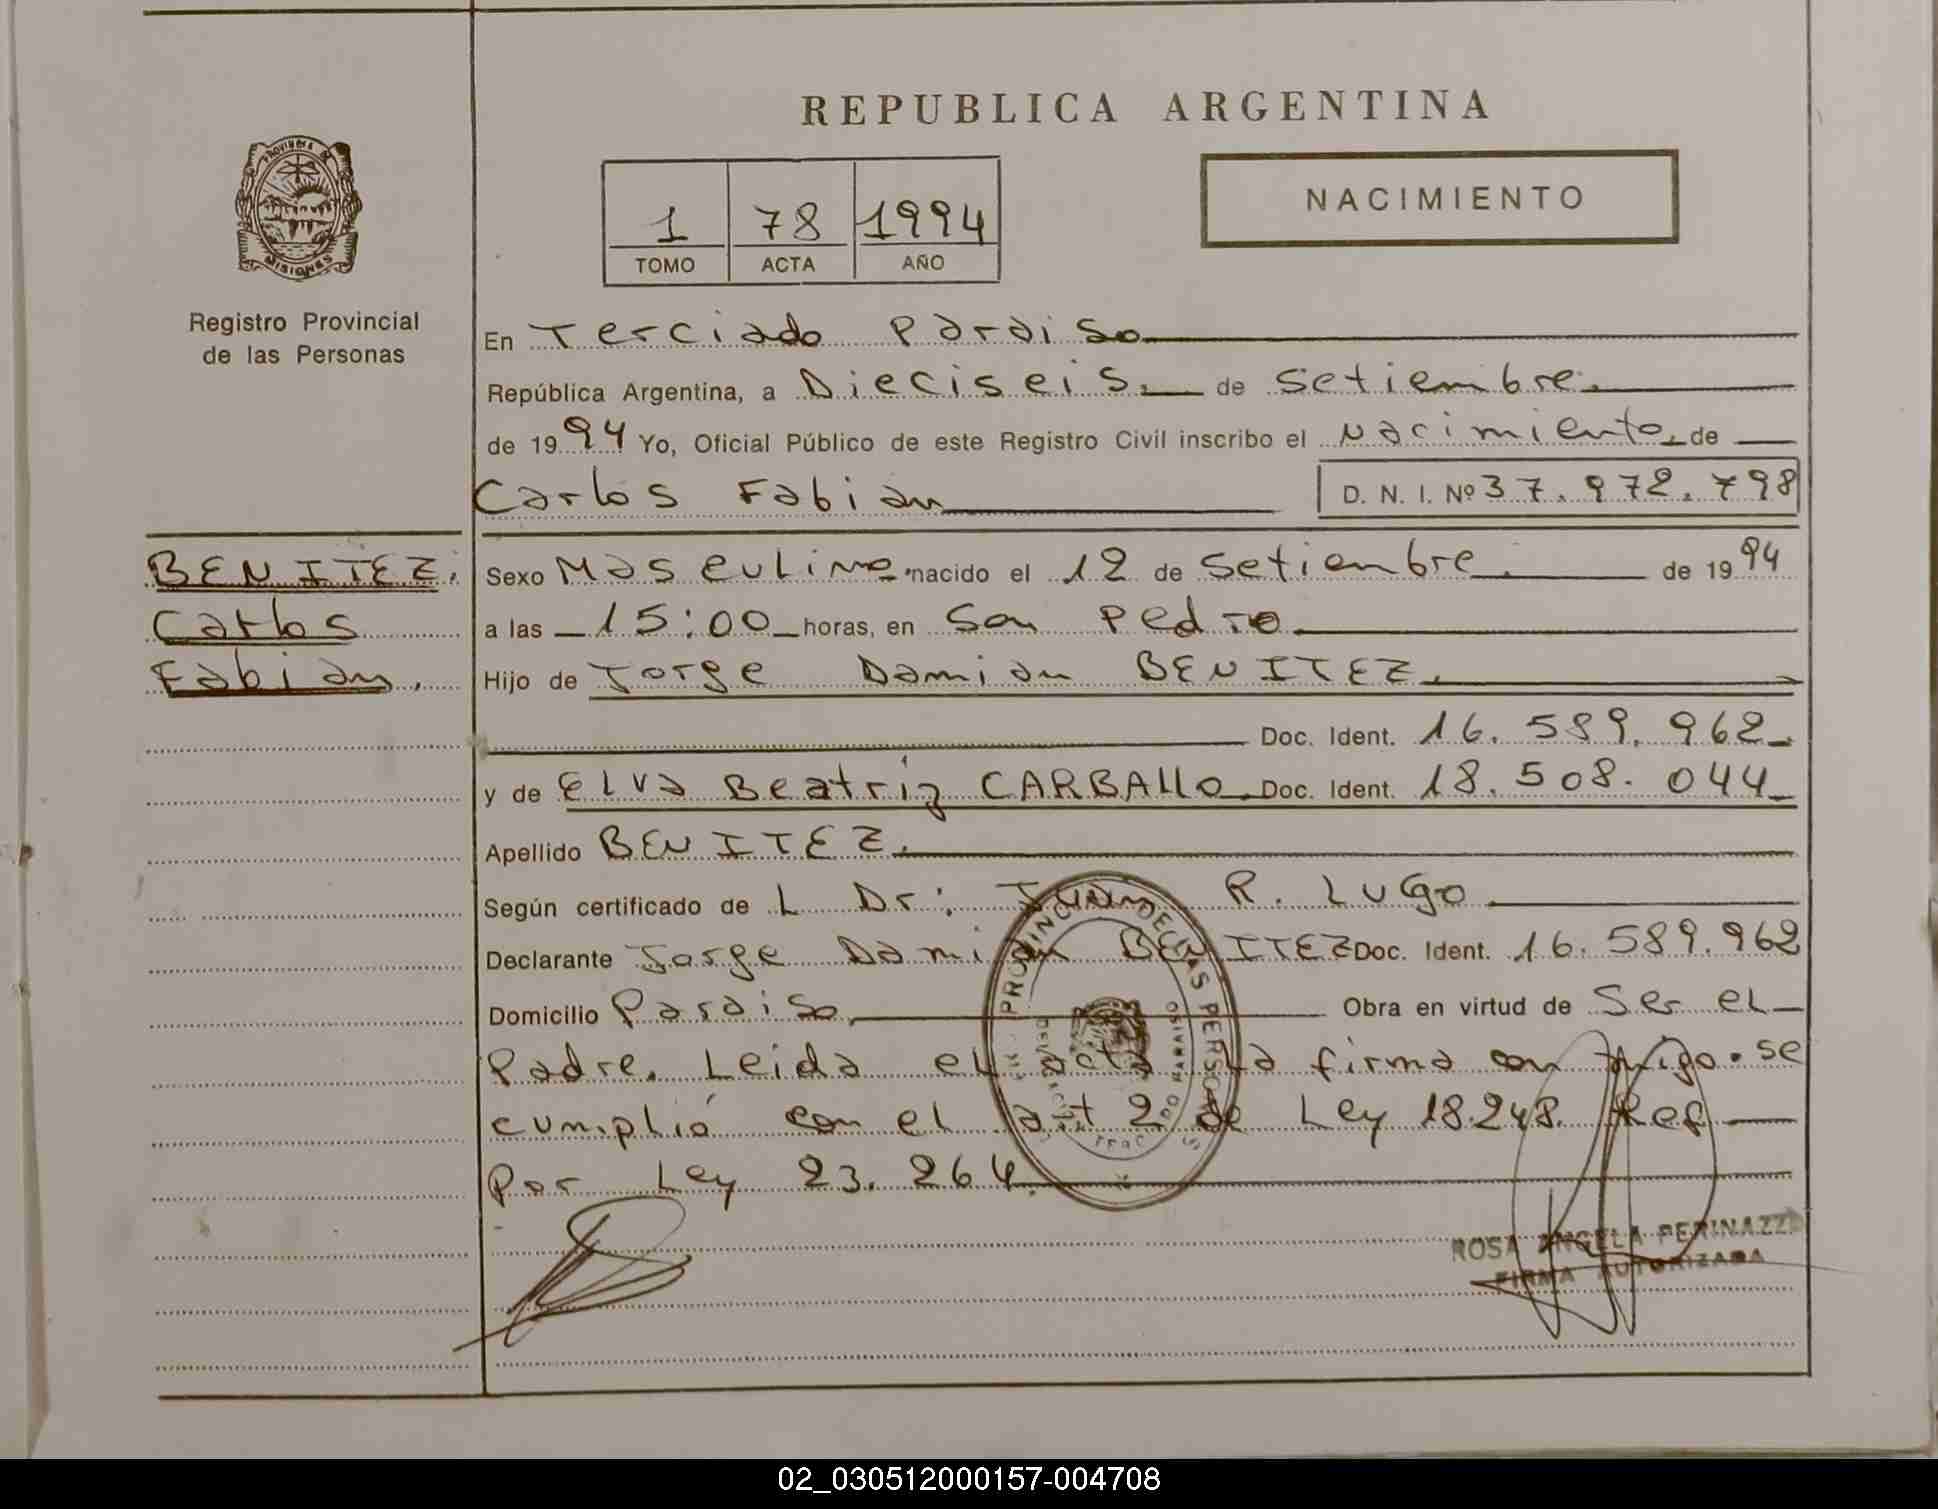 REPUBLICA ARGENTINA
PROVINCIA DE
MISIONES
Registro Provincial
de las Personas
1 78 1994
TOMO ACTA AÑO
NACIMIENTO
En Terciado Paraiso
República Argentina, a Dieciseis. de Setiembre.
de 1994 Yo, Oficial Público de este Registro Civil inscribo el Nacimiento, de
Carlos Fabian D. N. I. Nº 37.972.798
BENITEZ.
Carlos
Fabian.
Sexo Masculino. nacido el 12 de Setiembre. de 1994
a las 15:00 horas, en San Pedro
Hijo de Jorge Damian BENITEZ.
Doc. Ident. 16.589.962
y de ELVa Beatriz CARBALLO. Doc. Ident. 18.508.044
Apellido BENITEZ.
Según certificado de L Dr: Juan R. Lugo
Declarante Jorge Damian BENITEZ Doc. Ident. 16.589.962
Domicilio Paraiso, Obra en virtud de Ser el
Padre. Leida el acta la firma conmigo. se
cumplió con el art 2 de Ley 18.248. Ref
Por Ley 23.264.
PROVINCIAL DE LAS PERSONAS
ROSA ANGELA PERINAZZI
FIRMA AUTORIZADA
02_030512000157-004708